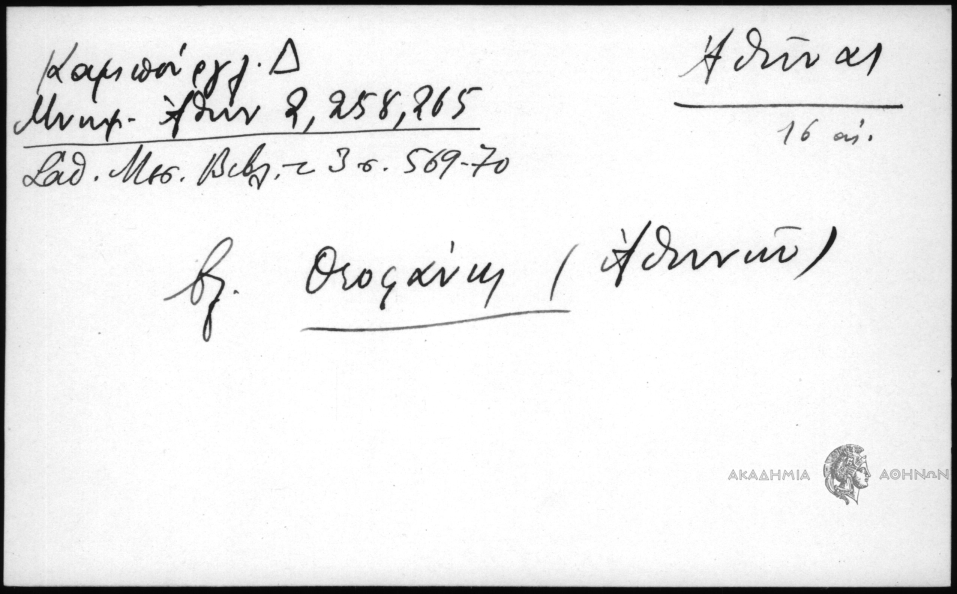 Καμπούργλ. Δ
Μνημ. Ἀθην 2, 258, 265
Σάθ. Μεσ. Βιβλ. τ 3 σ. 569-70
Ἀθήνας
16 αἰ.
βλ. Θεοφάνης (Ἀθηνῶν)
ΑΚΑΔΗΜΙΑ ΑΘΗΝΩΝ